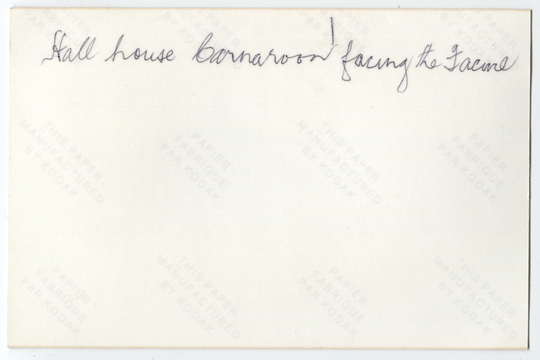 Hall house Carnarvon facing the Facine
THIS PAPER
MANUFACTURED
BY KODAK
PAPIER
FABRIQUE
PAR KODAK
THIS PAPER
MANUFACTURED
BY KODAK
PAPIER
FABRIQUE
PAR KODAK
PAPIER
FABRIQUE
PAR KODAK
THIS PAPER
MANUFACTURED
BY KODAK
PAPIER
FABRIQUE
PAR KODAK
THIS PAPER
MANUFACTURED
BY KODAK